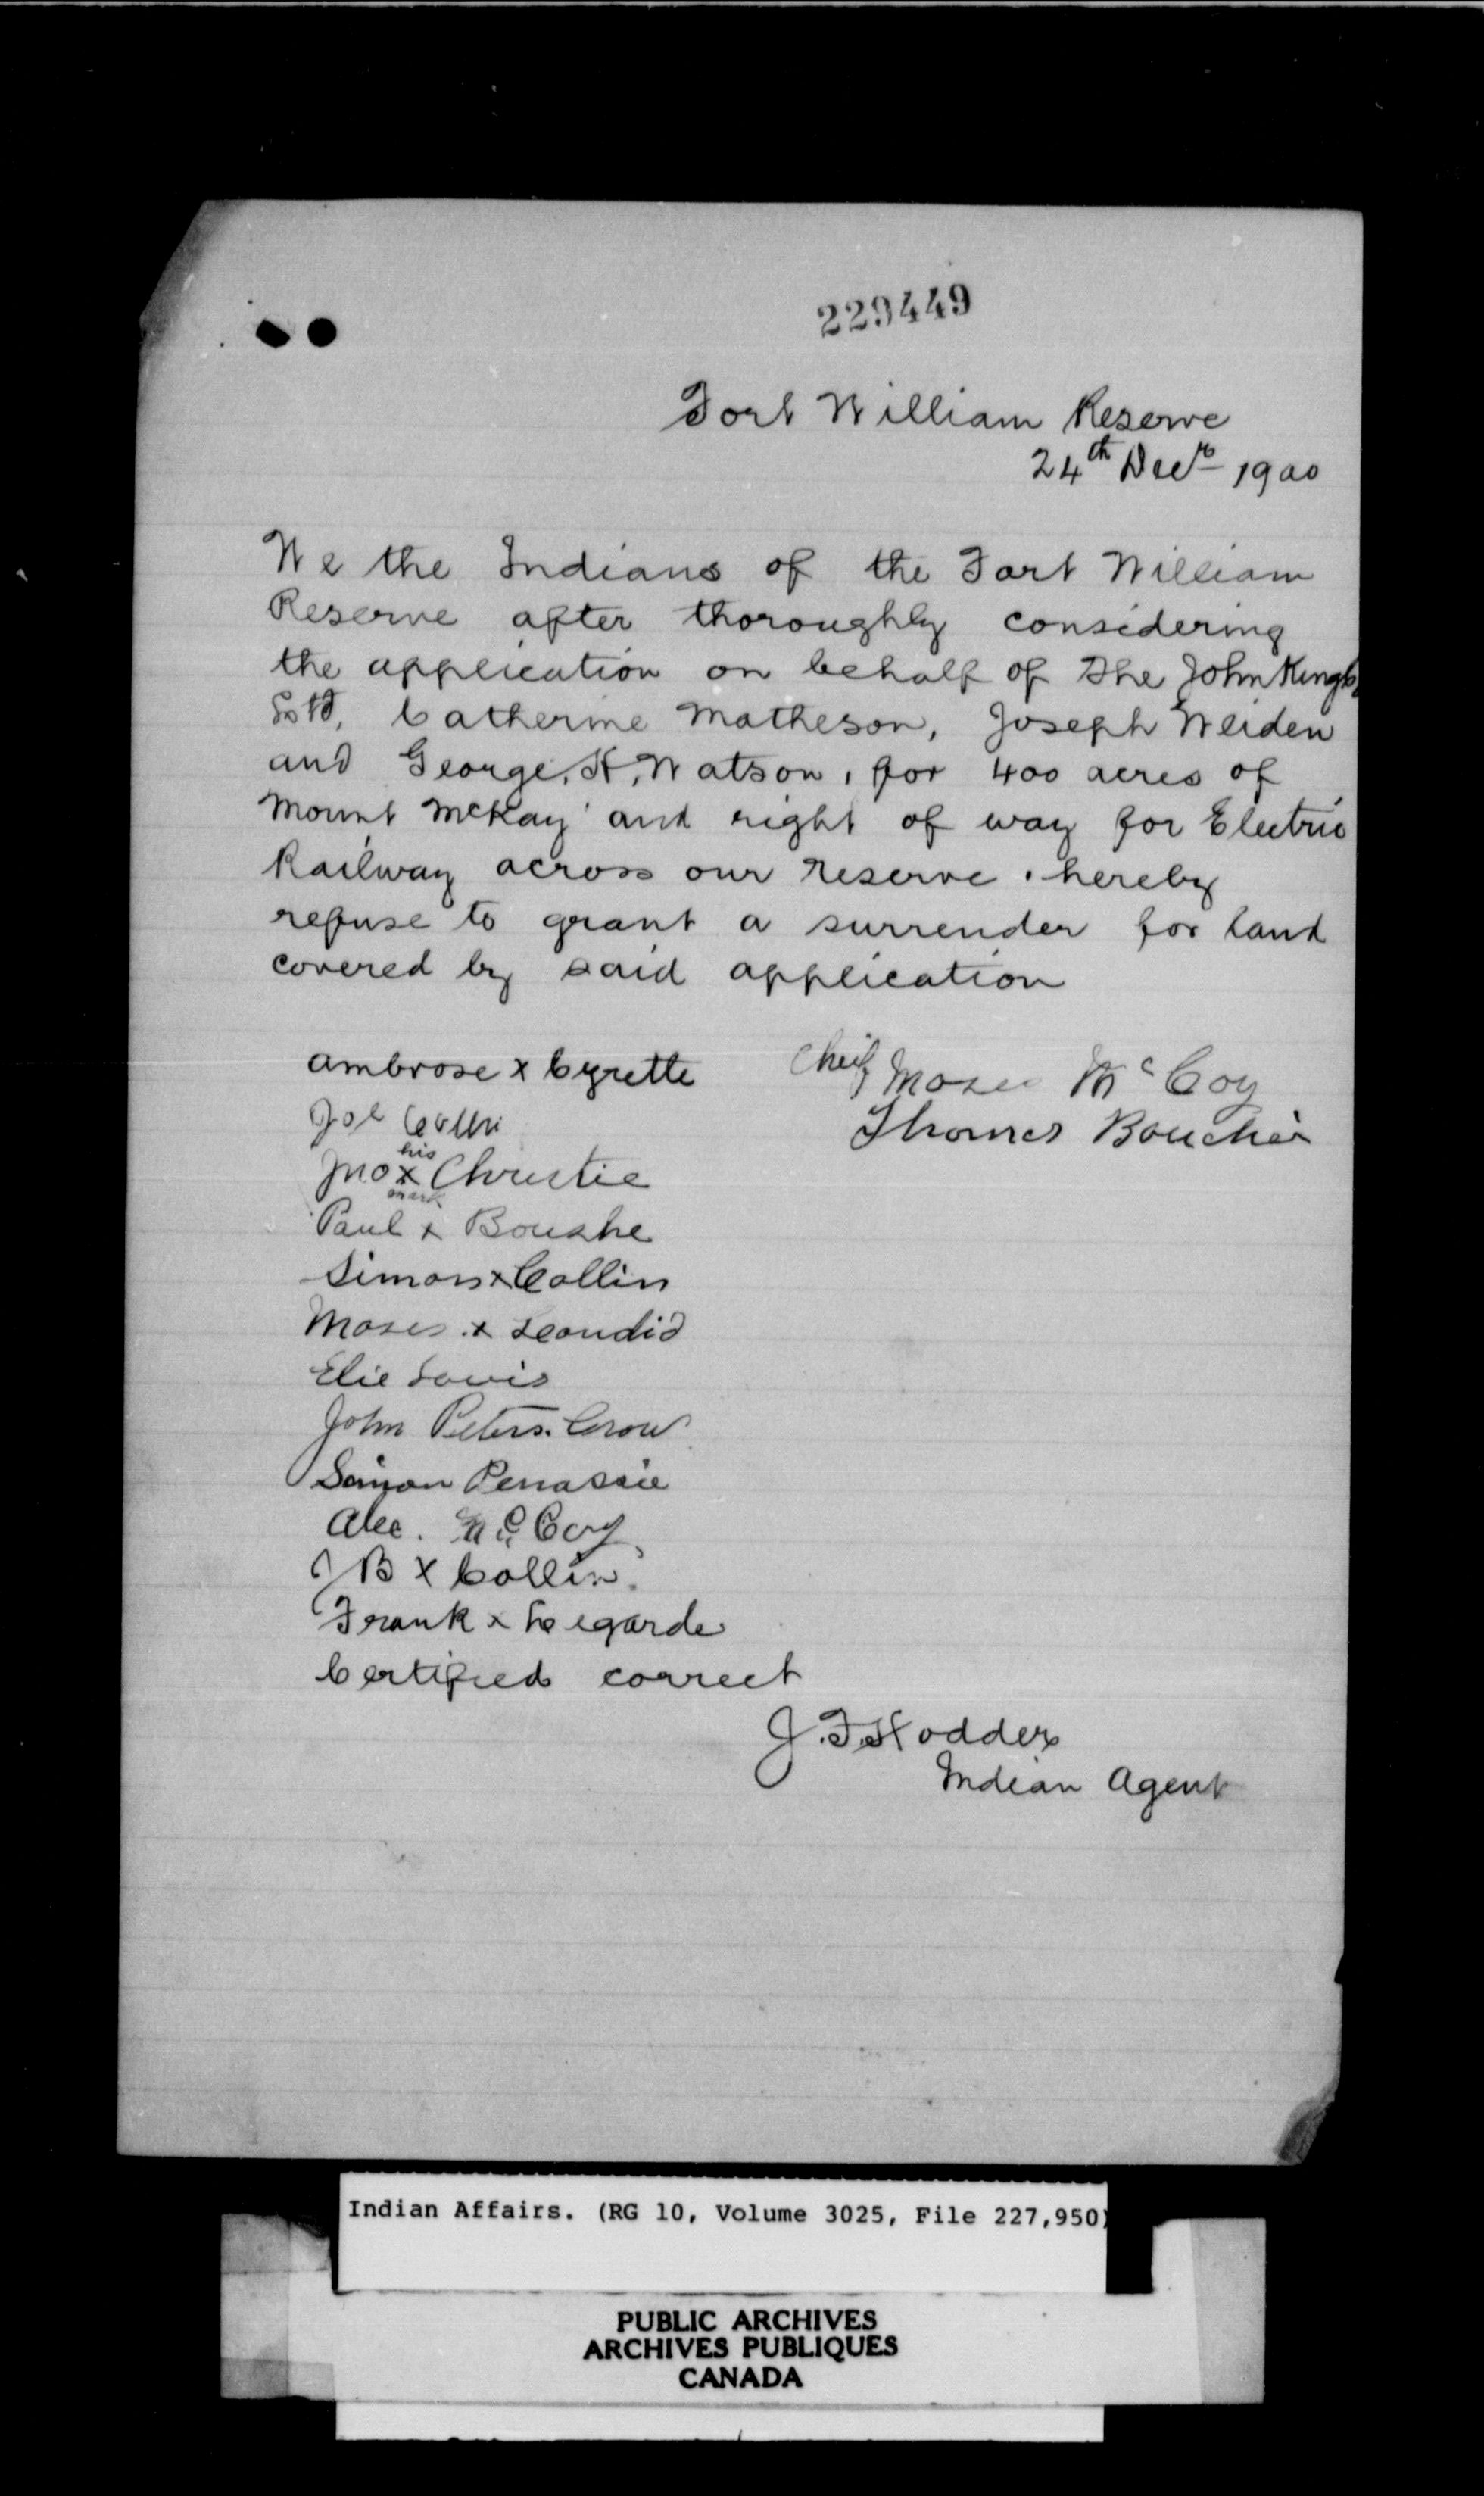 229449
Fort William Reserve
24th Decr 1900
We the Indians of the Fort William
Reserve after thoroughly considering
the application on behalf of The John King Co
Ltd, Catherine Matheson, Joseph Weiden
and George. H. Watson, for 400 acres of
Mount McKay and right of way for Electric
Railway across our reserve. hereby
refuse to grant a surrender for land
covered by said application
Ambrose x Cyrette
Chief Moses McCoy
Joe Collin
Thomas Boucher
Jno his x mark Christie
Paul x Boushe
Simon x Collin
Moses x
Elie Louis
John Peters. Crow
Simon Penassie
Alec. McCoy
JB x Collin.
Frank x Legarde
Certified correct
J. F. Hodder
Indian Agent
Indian Affairs. (RG 10, Volume 3025, File 227,950)
PUBLIC ARCHIVES
ARCHIVES PUBLIQUES
CANADA